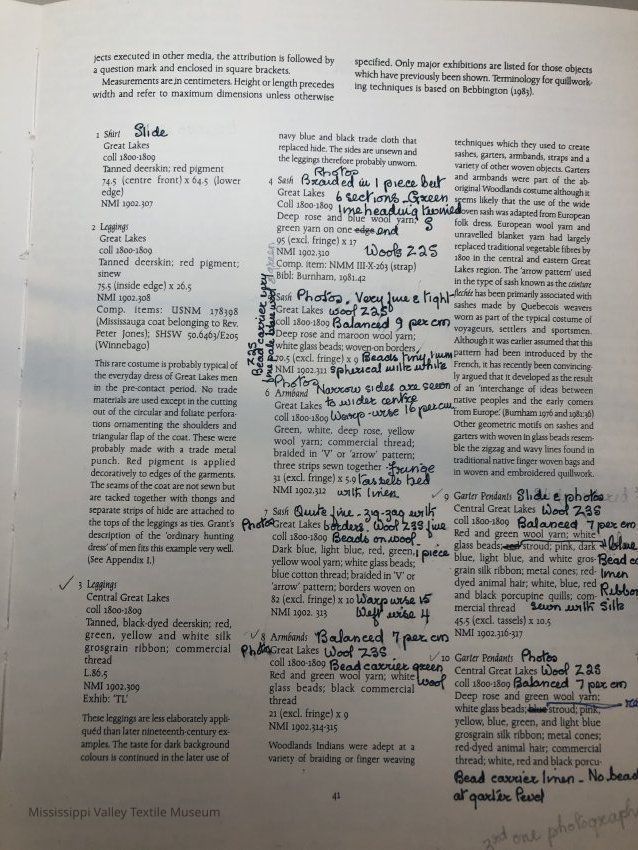 jects executed in other media, the attribution is followed by
a question mark and enclosed in square brackets.
Measurements are in centimeters. Height or length precedes
width and refer to maximum dimensions unless otherwise
specified. Only major exhibitions are listed for those objects
which have previously been shown. Terminology for quillwork-
ing techniques is based on Bebbington (1983).
1 Shirt Slide
Great Lakes
coll 1800-1809
Tanned deerskin; red pigment
74.5 (centre front) x 64.5 (lower
edge)
NMI 1902.307
2 Leggings
Great Lakes
coll 1800-1809
Tanned deerskin; red pigment;
sinew
75.5 (inside edge) x 26.5
NMI 1902.308
Comp. items: USNM 178398
(Mississauga coat belonging to Rev.
Peter Jones); SHSW 50.6463/E205
(Winnebago)
This rare costume is probably typical of
the everyday dress of Great Lakes men
in the pre-contact period. No trade
materials are used except in the cutting
out of the circular and foliate perfora-
tions ornamenting the shoulders and
triangular flap of the coat. These were
probably made with a trade metal
punch. Red pigment is applied
decoratively to edges of the garments.
The seams of the coat are not sewn but
are tacked together with thongs and
separate strips of hide are attached to
the tops of the leggings as ties. Grant's
description of the 'ordinary hunting
dress' of men fits this example very well.
(See Appendix I.)
✓ 3 Leggings
Central Great Lakes
coll 1800-1809
Tanned, black-dyed deerskin; red,
green, yellow and white silk
grosgrain ribbon; commercial
thread
L.86.5
NMI 1902.309
Exhib: 'TL'
These leggings are less elaborately appli-
quéd than later nineteenth-century ex-
amples. The taste for dark background
colours is continued in the later use of
navy blue and black trade cloth that
replaced hide. The sides are unsewn and
the leggings therefore probably unworn.
Photos
4 Sash Braided in 1 piece but
Great Lakes 6 sections. Green
Coll 1800-1809 line heading twined
Deep rose and blue wool yarn; S
green yarn on one edge end
95 (excl. fringe) x 17
NMI 1902.310 Wools Z2S
Comp. item: NMM III-X-263 (strap)
Bibl: Burnham, 1981.42
Z2S
bead carrier very
fine pale blue wool
5 Sash Photos. Very fine & tight
Great Lakes Wool Z2S
coll 1800-1809 Balanced 9 per cm
Deep rose and maroon wool yarn;
white glass beads; woven-on borders
70.5 (excl. fringe) x 9 Beads tiny 1mm
NMI 1902.311 spherical milk white
Photos Narrow sides are sewn
6 Armband to wider centre
Great Lakes
coll 1800-1809 Warp-wise 16 per cm
Green, white, deep rose, yellow
wool yarn; commercial thread;
braided in 'V' or 'arrow' pattern;
three strips sewn together fringe
31 (excl. fringe) x 5.9 tassels tied
NMI 1902.312 with linen
7 Sash Quite fine - zig-zag with
Photos Great Lakes borders. Wool Z3S fine
coll 1800-1809 Beads on wool.
Dark blue, light blue, red, green, 1 piece
yellow wool yarn; white glass beads;
blue cotton thread; braided in 'V' or
'arrow' pattern; borders woven on
82 (excl. fringe) x 10 Warp wise 15
NMI 1902. 313 Weft wise 4
✓ 8 Armbands Balanced 7 per cm
Photos Great Lakes Wool Z3S
coll 1800-1809 Bead carrier green
Red and green wool yarn; white wool
glass beads; black commercial
thread
21 (excl. fringe) x 9
NMI 1902.314-315
Woodlands Indians were adept at a
variety of braiding or finger weaving
techniques which they used to create
sashes, garters, armbands, straps and a
variety of other woven objects. Garters
and armbands were part of the ab-
original Woodlands costume although it
seems likely that the use of the wide
woven sash was adapted from European
folk dress. European wool yarn and
unravelled blanket yarn had largely
replaced traditional vegetable fibres by
1800 in the central and eastern Great
Lakes region. The 'arrow pattern' used
in the type of sash known as the ceinture
flechée has been primarily associated with
sashes made by Quebecois weavers
worn as part of the typical costume of
voyageurs, settlers and sportsmen.
Although it was earlier assumed that this
pattern had been introduced by the
French, it has recently been convincing-
ly argued that it developed as the result
of an 'interchange of ideas between
native peoples and the early comers
from Europe.' (Burnham 1976 and 1981:36)
Other geometric motifs on sashes and
garters with woven in glass beads resem-
ble the zigzag and wavy lines found in
traditional native finger woven bags and
in woven and embroidered quillwork.
✓ 9 Garter Pendants Slide & photos
Central Great Lakes Wool Z3S
coll 1800-1809 Balanced 7 per cm
Red and green wool yarn; white
glass beads; red stroud; pink, dark + blue
blue, light blue, and white gros- Bead ca
grain silk ribbon; metal cones; red- linen
dyed animal hair; white, blue, red Ribbon
and black porcupine quills; com-
mercial thread sewn with silk
45.5 (excl. tassels) x 10.5
NMI 1902.316-317
✓ 10 Garter Pendants Photos
Central Great Lakes Wool Z2S
coll 1800-1809 Balanced 7 per cm
Deep rose and green wool yarn;
white glass beads; blue stroud; pink,
yellow, blue, green, and light blue
grosgrain silk ribbon; metal cones;
red-dyed animal hair; commercial
thread; white, red and black porcu-
Bead carrier linen - No bead
at garter level
2nd one photograph
41
Mississippi Valley Textile Museum